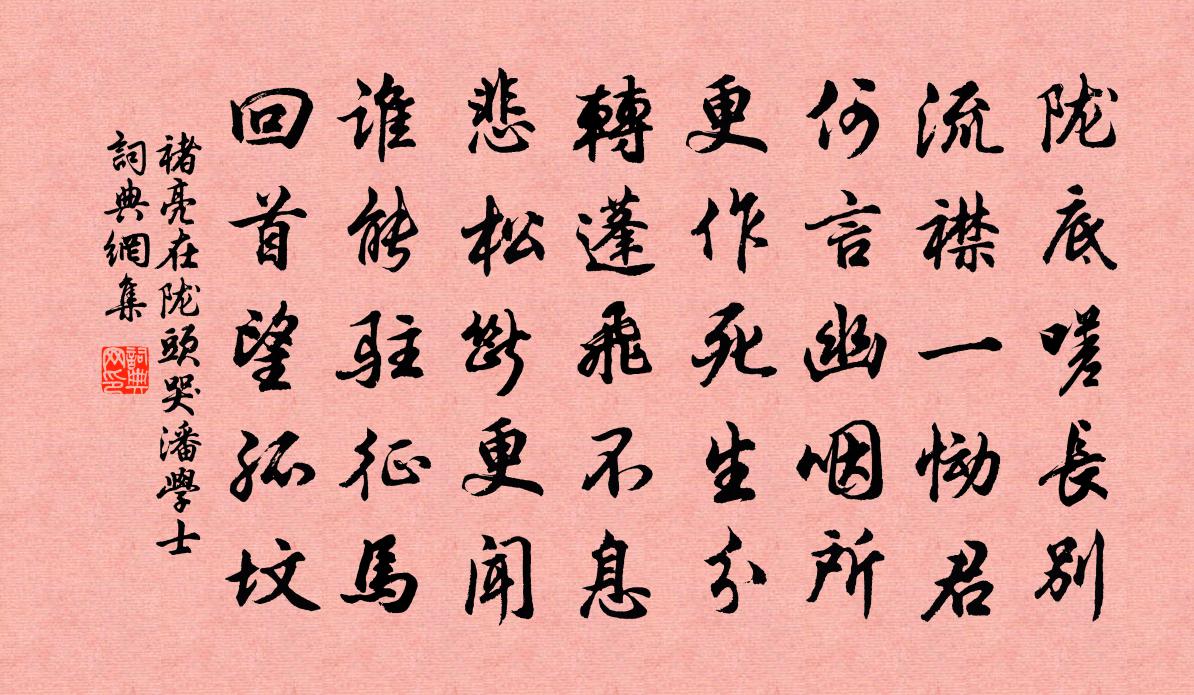 陇底嗟長别
流襟一恸君
何言幽咽所
更作死生分
轉蓬飛不息
悲松断更闻
谁能驻征馬
回首望孤坟
褚亮在陇頭哭潘學士
詞典網集
詞典
网印